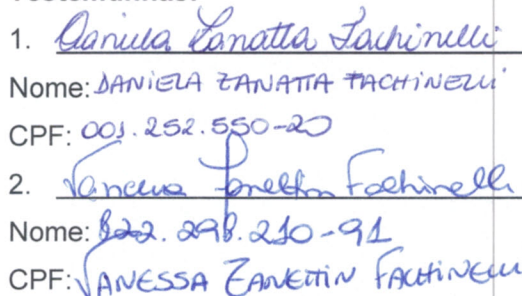 1. Daniela Zanatta Fachinelli
Nome: DANIELA ZANATTA FACHINELLI
CPF: 001.252.550-20
2. Vanessa Zanettin Fachinelli
Nome: 822.298.210-91
CPF: VANESSA ZANETTIN FACHINELLI